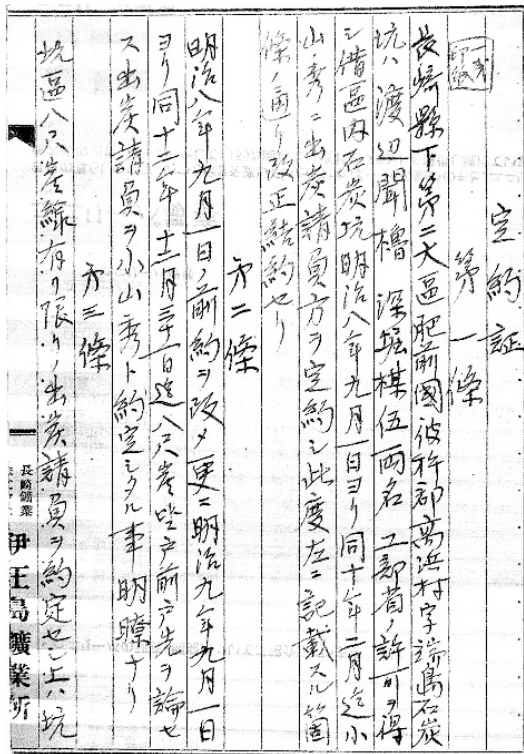 定約証
一銭
印紙
第一條
長崎縣下第二大區肥前國彼杵郡高浜村字端島石炭
坑ハ渡辺聞櫓 深堀楳伍両名工部省ノ許可ヲ得
シ借區内石炭坑明治八年九月一日ヨリ同十年二月迄小
山秀ニ出炭請負方ヲ定約シ此度左ニ記載スル箇
條ノ通リ改正結約セリ
第二條
明治八年九月一日ノ前約ヲ改メ更ニ明治九年九月一日
ヨリ同十二年十二月三十一日迄八尺炭 前 先ヲ論セ
ス出炭請負ヲ小山秀ト約定シタル事明瞭ナリ
第三條
坑區八尺炭線有リ限リノ出炭請負ヲ約定セシ上ハ坑
長崎鑛業
伊王島鑛業所